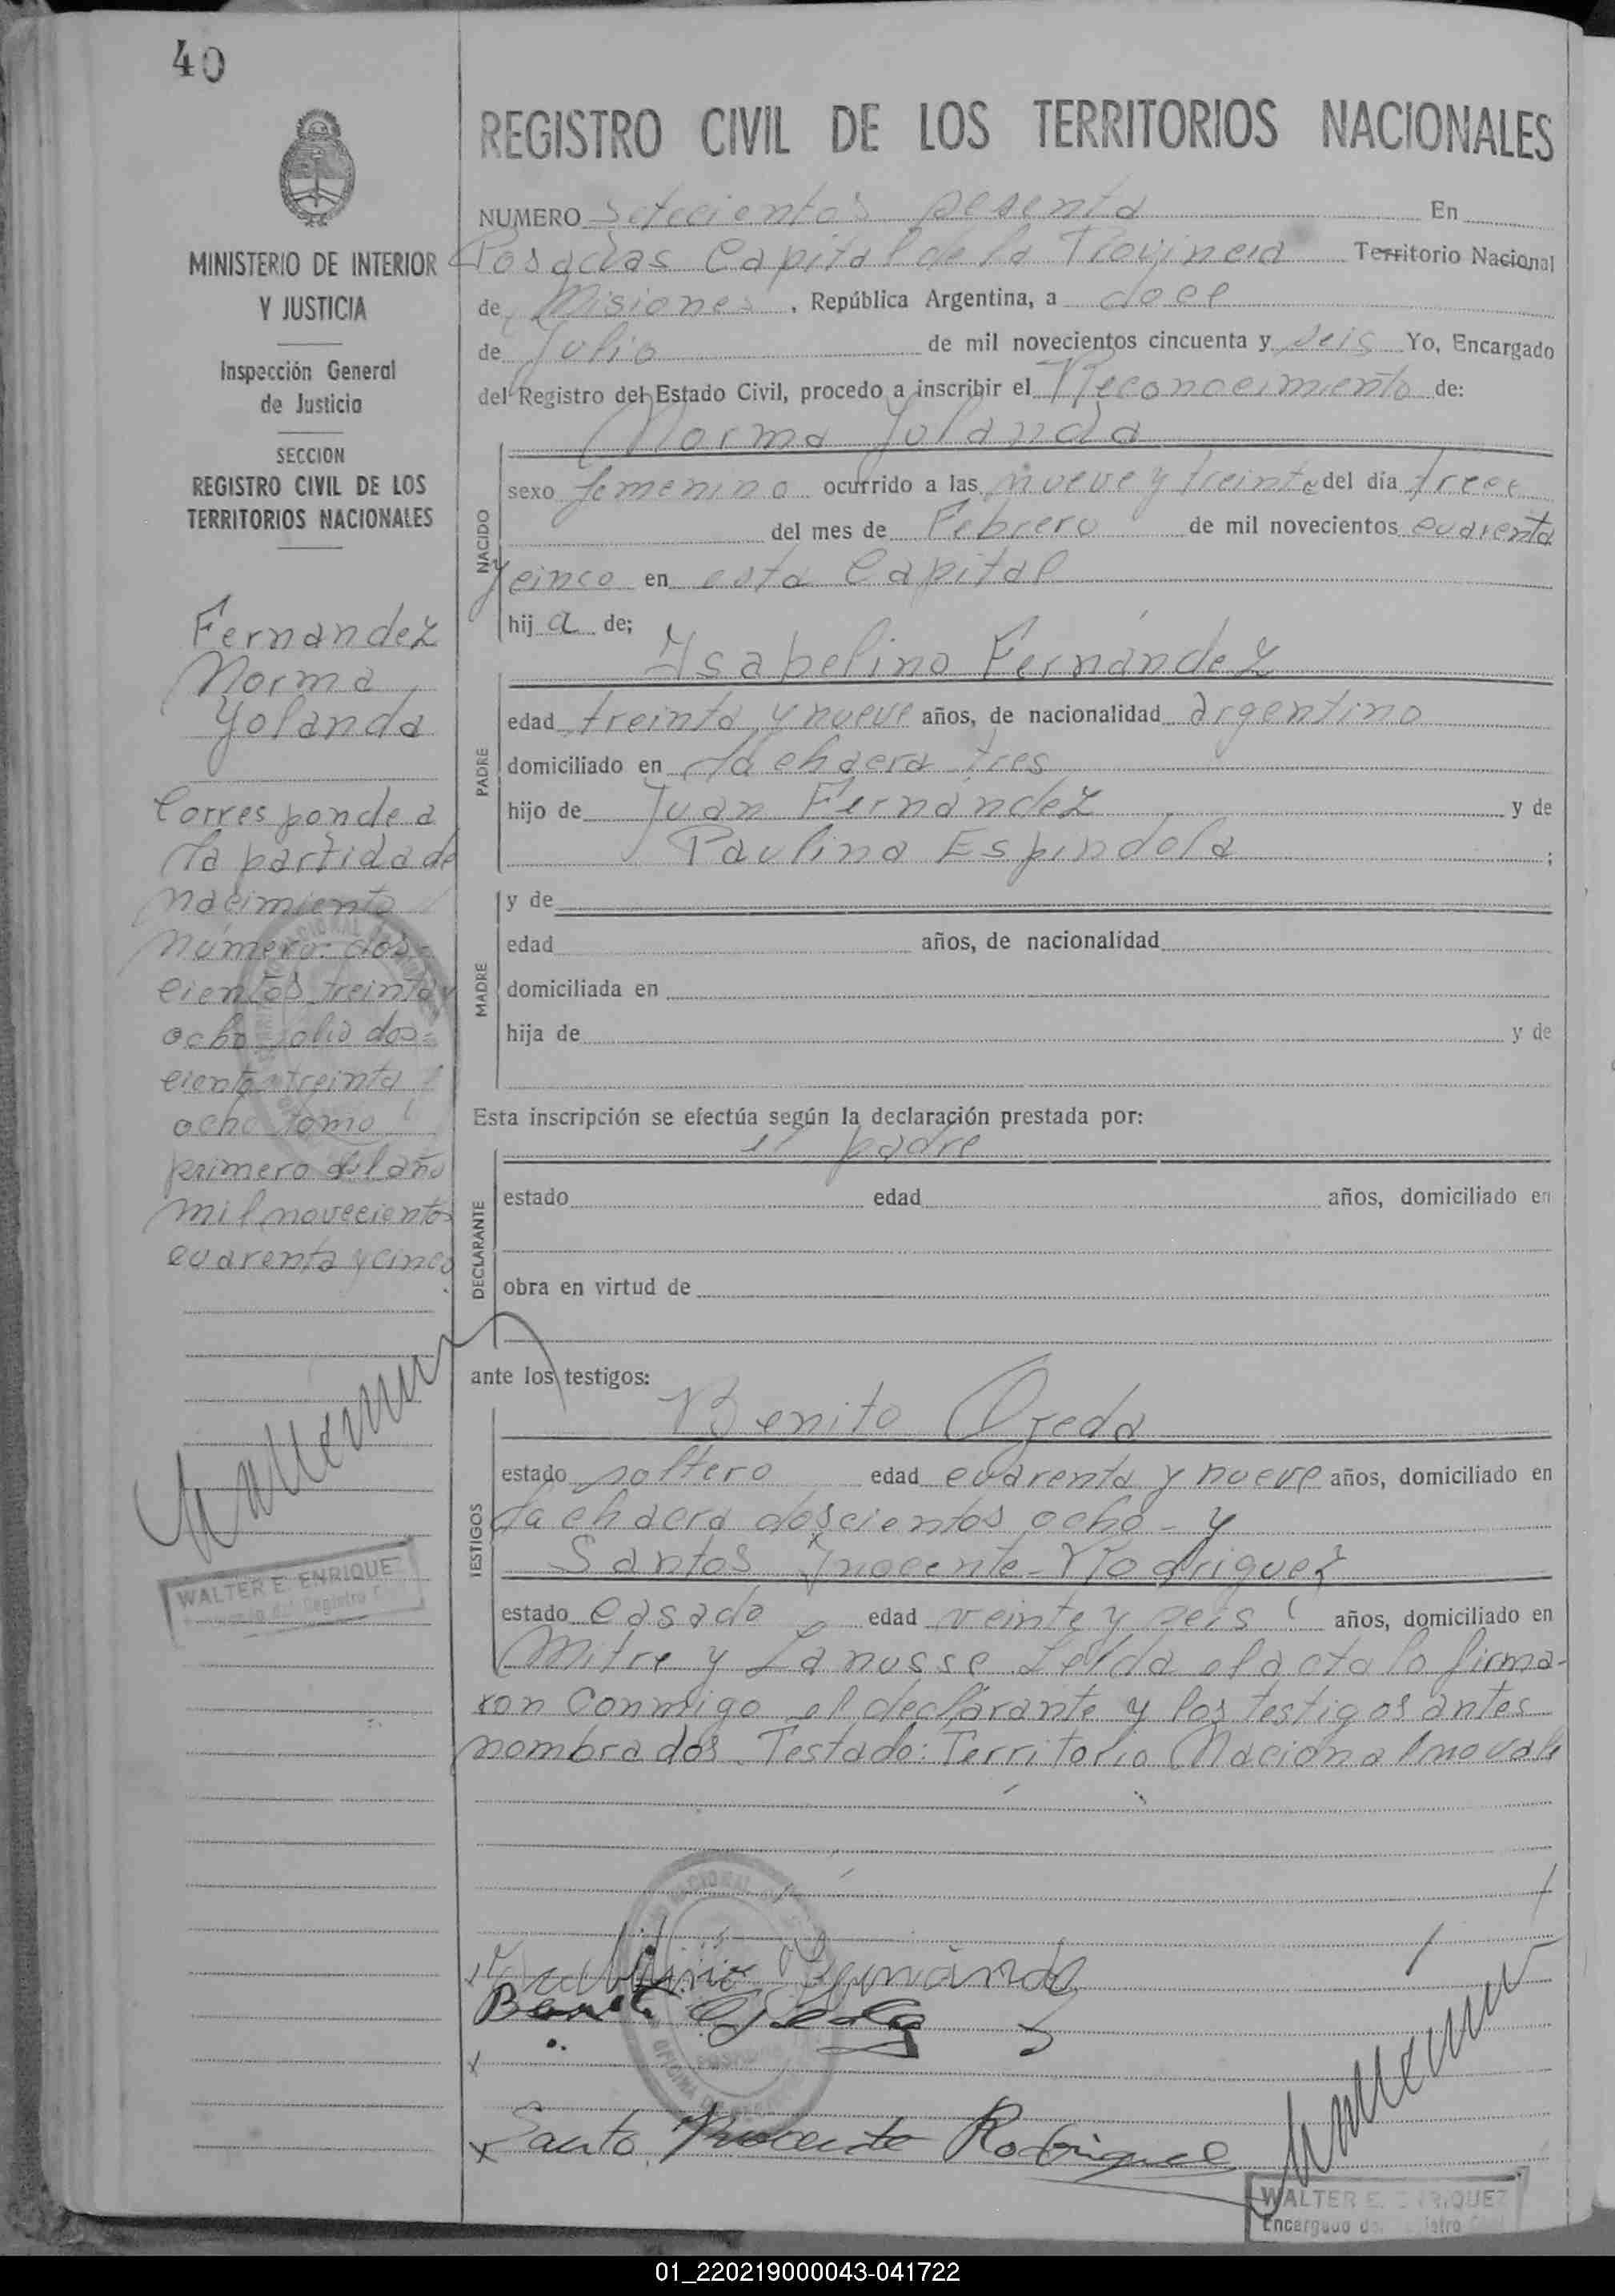 40
MINISTERIO DE INTERIOR
Y JUSTICIA
Inspección General
de Justicia
SECCION
REGISTRO CIVIL DE LOS
TERRITORIOS NACIONALES
Fernandez
Norma
Yolanda
Corresponde a
la partida de
nacimiento
número: dos=
cientos treinta y
ocho folio dos=
cientos treinta
ocho tomo
primero del año
mil novecientos
cuarenta y cinco
WALTER E. ENRIQUEZ
REGISTRO CIVIL DE LOS TERRITORIOS NACIONALES
NUMERO setecientos sesenta En
Posadas Capital de la Provincia Territorio Nacional
de Misiones, República Argentina, a doce
de Julio de mil novecientos cincuenta y seis Yo, Encargado
del Registro del Estado Civil, procedo a inscribir el Reconocimiento de:
Norma Yolanda
NACIDO
sexo femenino ocurrido a las nueve y treinta del día trece
del mes de Febrero de mil novecientos cuarenta
y cinco en esta Capital
hija de;
Ysabelino Fernández
PADRE
edad treinta y nueve años, de nacionalidad argentino
domiciliado en la chacra tres
hijo de Juan Fernández y de
Paulina Espindola ;
MADRE
y de
edad años, de nacionalidad
domiciliada en
hija de y de
Esta inscripción se efectúa según la declaración prestada por:
el padre
DECLARANTE
estado edad años, domiciliado en
obra en virtud de
ante los testigos:
Benito Ojeda
TESTIGOS
estado soltero edad cuarenta y nueve años, domiciliado en
la chacra doscientos ocho - y
Santos Inocente Rodriguez
estado casado edad veinte y seis años, domiciliado en
Mitre y Lanusse Leída el acta la firma-
ron conmigo el declarante y los testigos antes
nombrados. Testado: Territorio Nacional no vale
Benito Ojeda
Santo Inocente Rodriguez
WALTER E. ENRIQUEZ
Encargado del Registro
01_220219000043-041722